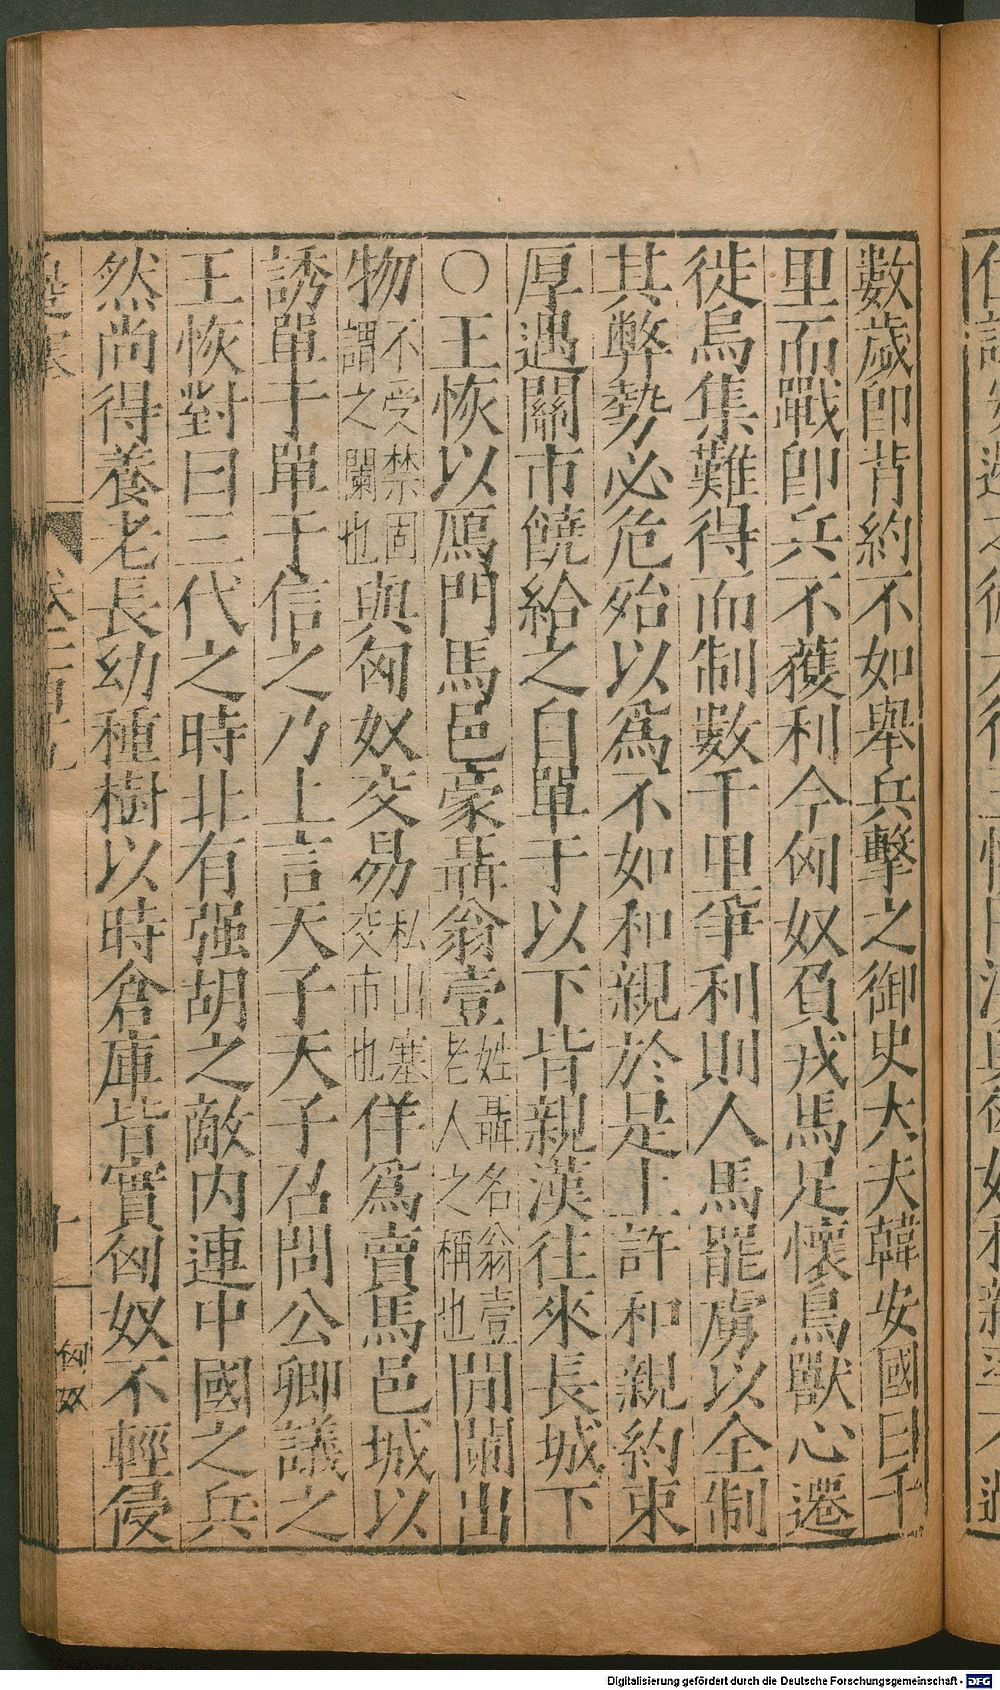 數歲卽背約不如舉兵擊之御史大夫韓安國曰千
里而戰卽兵不獲利今匈奴負戎馬足懷鳥獸心遷
徙鳥集難得而制數千里爭利則人馬罷虜以全制
其弊勢必危殆以爲不如和親於是上許和親約束
厚遇關市饒給之自單于以下皆親漢往來長城下
〇王恢以鴈門馬邑豪聶翁壹姓聶名翁壹老人之稱也閒闌出
物不受禁固謂之闌也與匈奴交易私出塞交市也佯爲賣馬邑城以
誘單于單于信之乃上言天子天子召問公卿議之
王恢對曰三代之時北有强胡之敵内連中國之兵
然尚得養老長幼種樹以時倉庫皆實匈奴不輕侵
十
匈奴
Digitalisierung gefördert durch die Deutsche Forschungsgemeinschaft - DFG